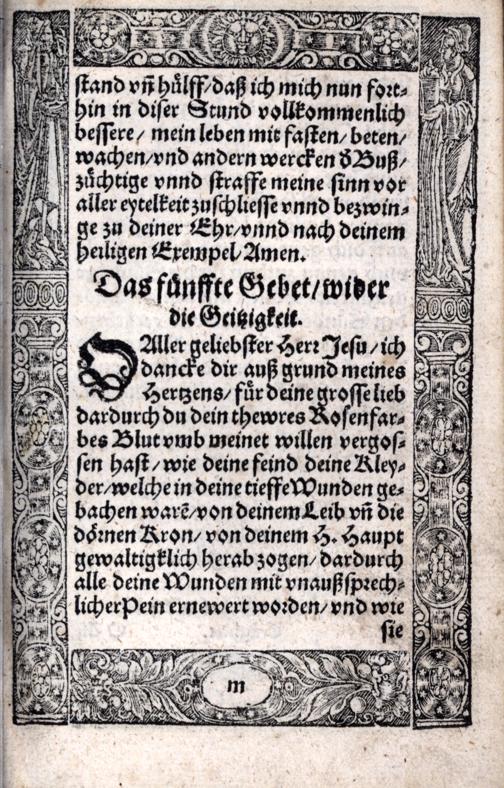 stand vn̄ hülff/ daß ich mich nun fort⸗
hin in diser Stund vollkommenlich
bessere/ mein leben mit fasten/ beten/
wachen/ vnd andern wercken d̕ Buß/
züchtige vnnd straffe meine sinn vor
aller eytelkeit zuschliesse vnnd bezwin⸗
ge zu deiner Ehr/ vnnd nach deinem
heiligen Exempel/ Amen.
Das fünffte Gebet/ wider
die Geitzigkeit.
O Aller geliebster Herr Jesu/ ich
dancke dir auß grund meines
Hertzens/ für deine grosse lieb
dardurch du dein thewres Rosenfar⸗
bes Blut vmb meinet willen vergos⸗
sen hast/ wie deine feind deine Kley⸗
der/ welche in deine tieffe Wunden ge⸗
bachen warē/ von deinem Leib vn̄ die
dörnen Kron/ von deinem H. Haupt
gewaltigklich herab zogen/ dardurch
alle deine Wunden mit vnaußsprech⸗
licher Pein ernewert worden/ vnd wie
sie
m